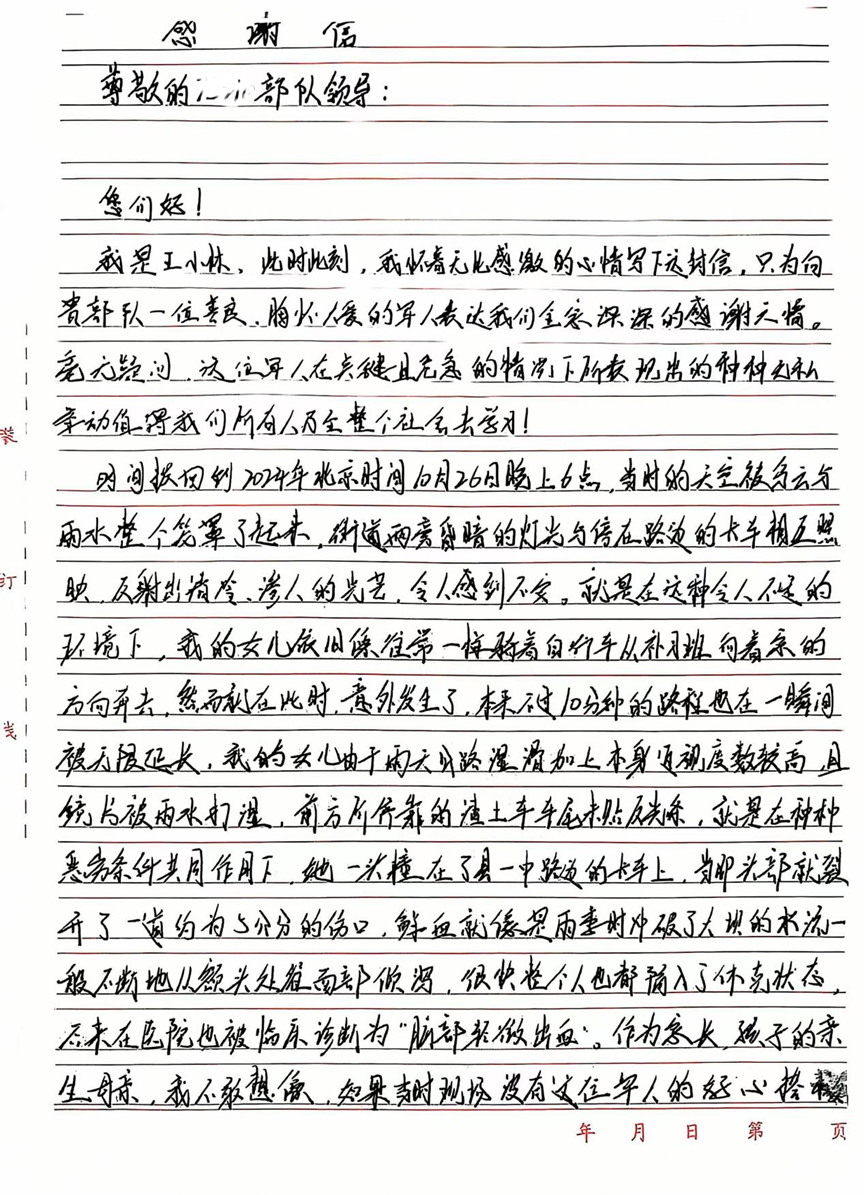 感谢信
尊敬的部队领导：
您们好！
我是王小林，此时此刻，我怀着无比感激的心情写下这封信，只为向
贵部队一位善良、胸怀人爱的军人表达我们全家深深的感谢之情。
毫无疑问，这位军人在关键且危急的情况下所表现出的种种无私
举动值得我们所有人乃至整个社会去学习！
时间拨回到2024年北京时间10月26日晚上6点，当时的天空被乌云与
雨水整个笼罩了起来，街道两旁昏暗的灯光与停在路边的卡车相互照
映，反射出清冷、渗人的光芒，令人感到不安。就是在这种令人不适的
环境下，我的女儿依旧像往常一样骑着自行车从补习班向着家的
方向奔去，然而就在此时，意外发生了，本来不过10分钟的路程也在一瞬间
被无限延长，我的女儿由于雨天道路湿滑加上本身近视度数较高，且
镜片被雨水打湿，前方所停靠的渣土车车尾未贴反光条，就是在种种
恶劣条件共同作用下，她一头撞在了县一中路边的卡车上，当即头部就裂
开了一道约为5公分的伤口，鲜血就像是雨季时冲破了大坝的水流一
般不断地从额头处往面部倾泻，很快整个人也都陷入了休克状态，
后来在医院也被临床诊断为“脑部轻微出血”。作为家长，孩子的亲
生母亲，我不敢想像，如果当时现场没有这位军人的好心搭救
年 月 日 第 页
装
订
线